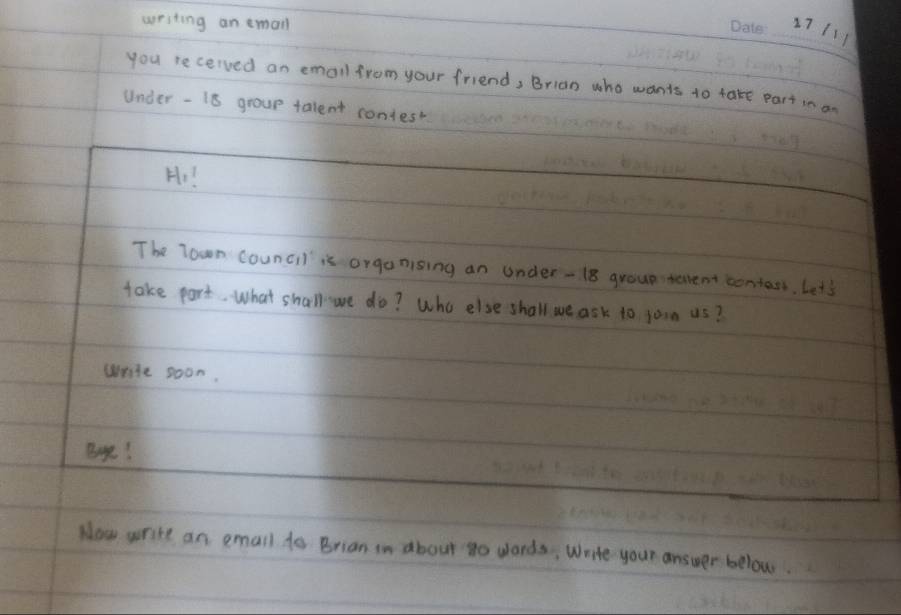 writing an email
Date: 17/11
you received an email from your friend, Brian who wants to take part in an
Under - 18 group talent contest
Hi!
The Town council is organising an under - 18 group talent contest. Let's
take part. What shall we do? Who else shall we ask to join us?
Write soon.
Bye!
Now write an email to Brian in about 80 words. Write your answer below.